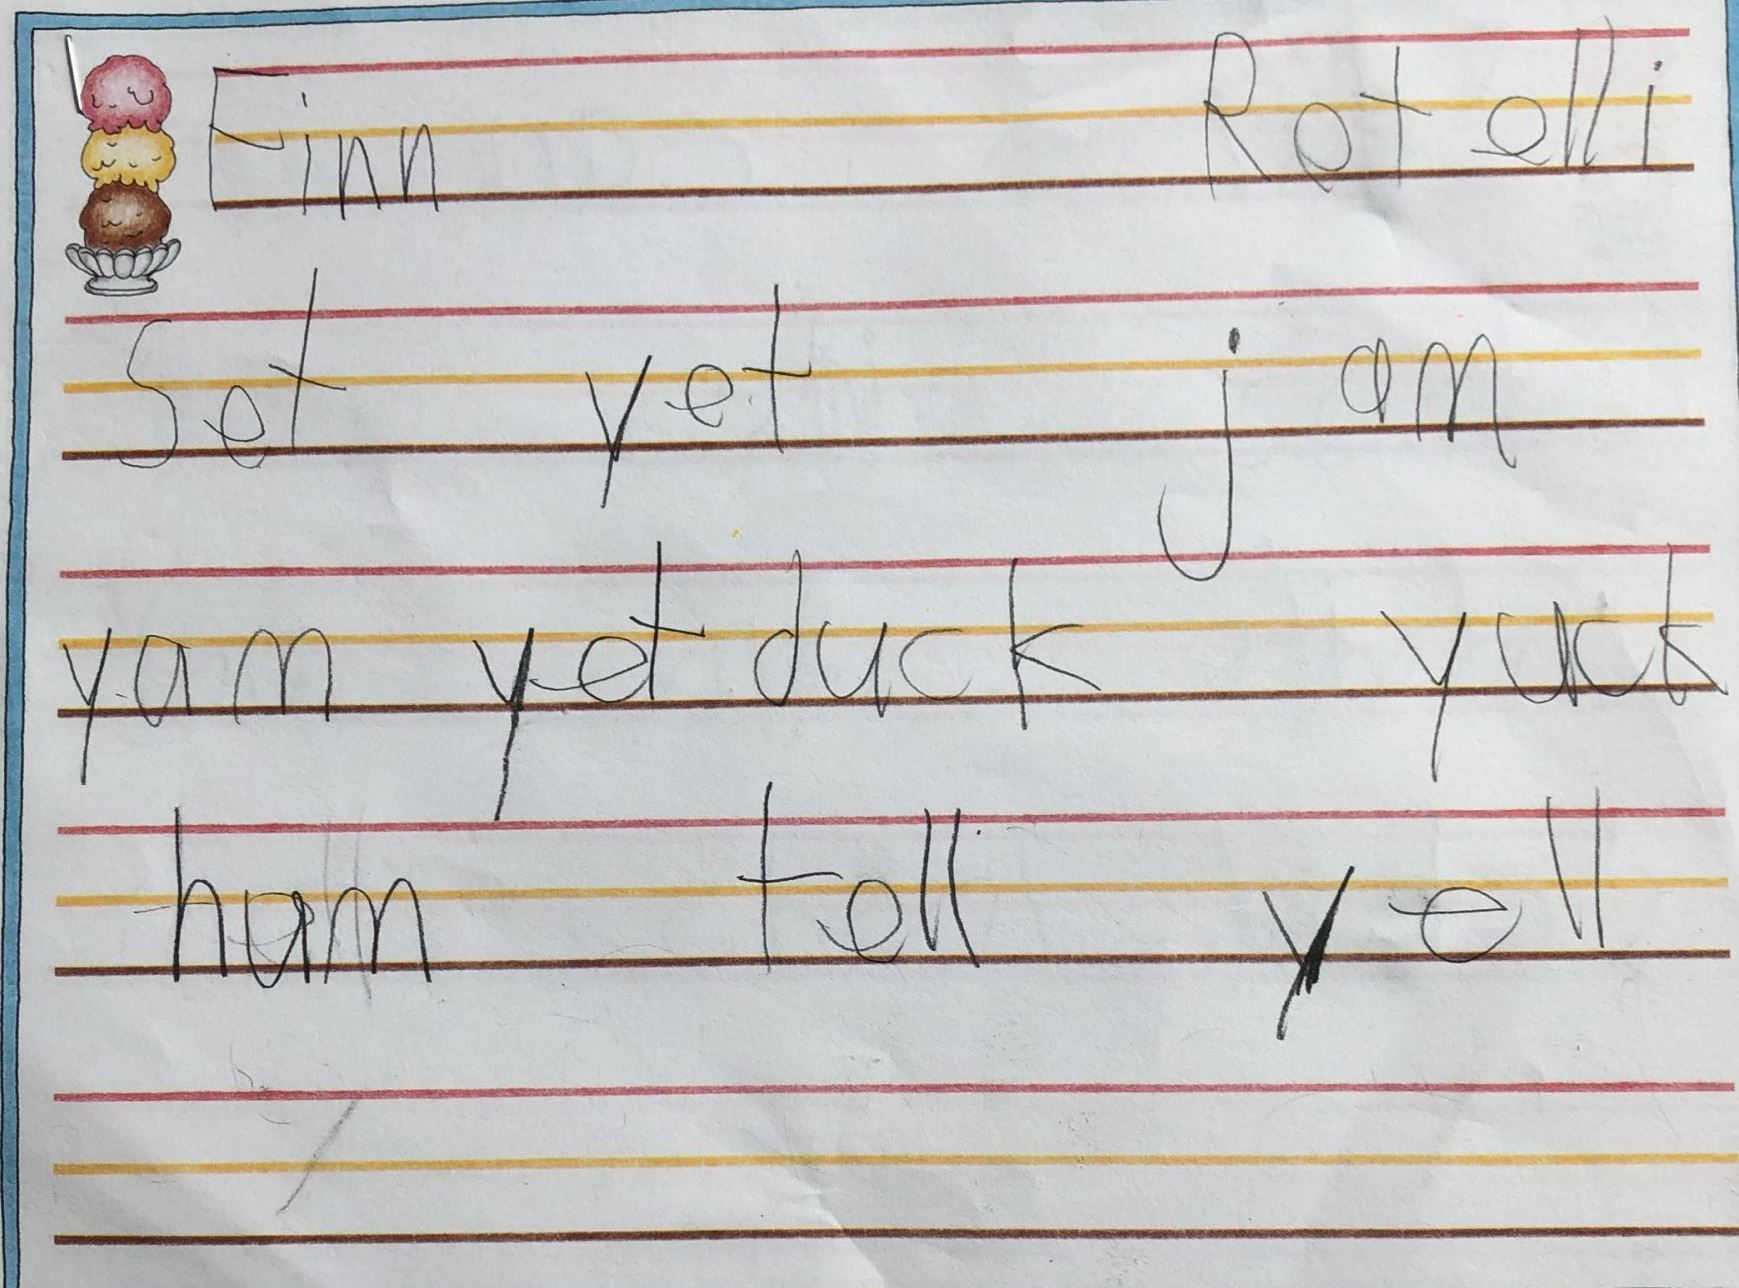 Finn Rotelli
Set yet jam
yam yet duck yuck
ham tell yell